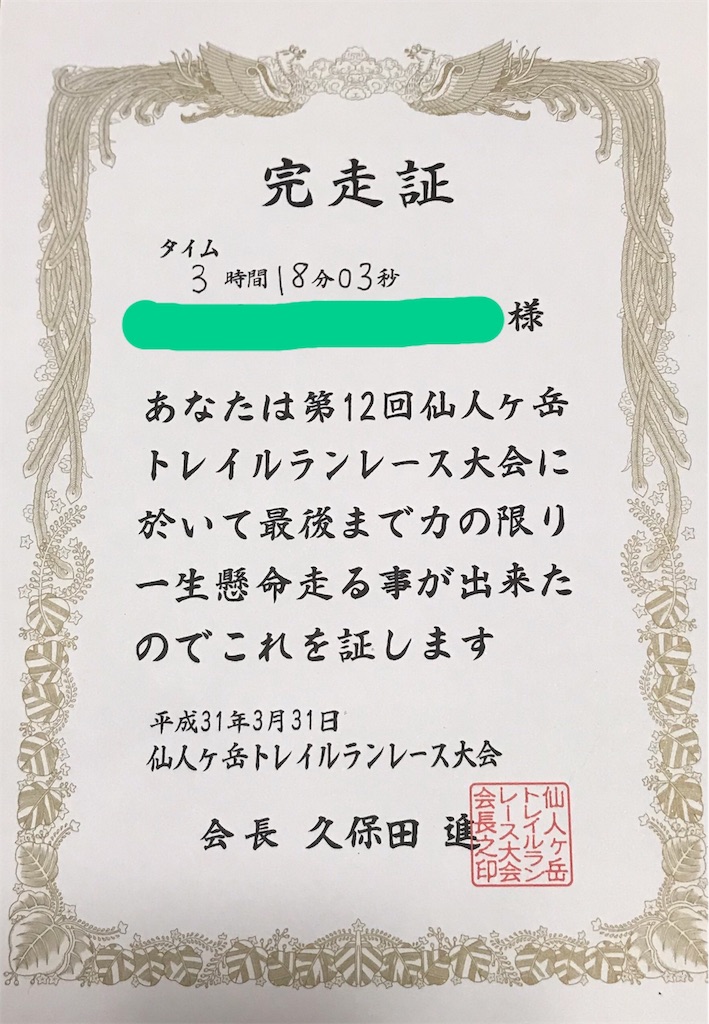 完走証
タイム
3時間18分03秒
様
あなたは第12回仙人ヶ岳
トレイルランレース大会に
於いて最後まで力の限り
一生懸命走る事が出来た
のでこれを証します
平成31年3月31日
仙人ヶ岳トレイルランレース大会
会長 久保田 進
仙人ヶ岳
トレイルラン
レース大会
会長之印